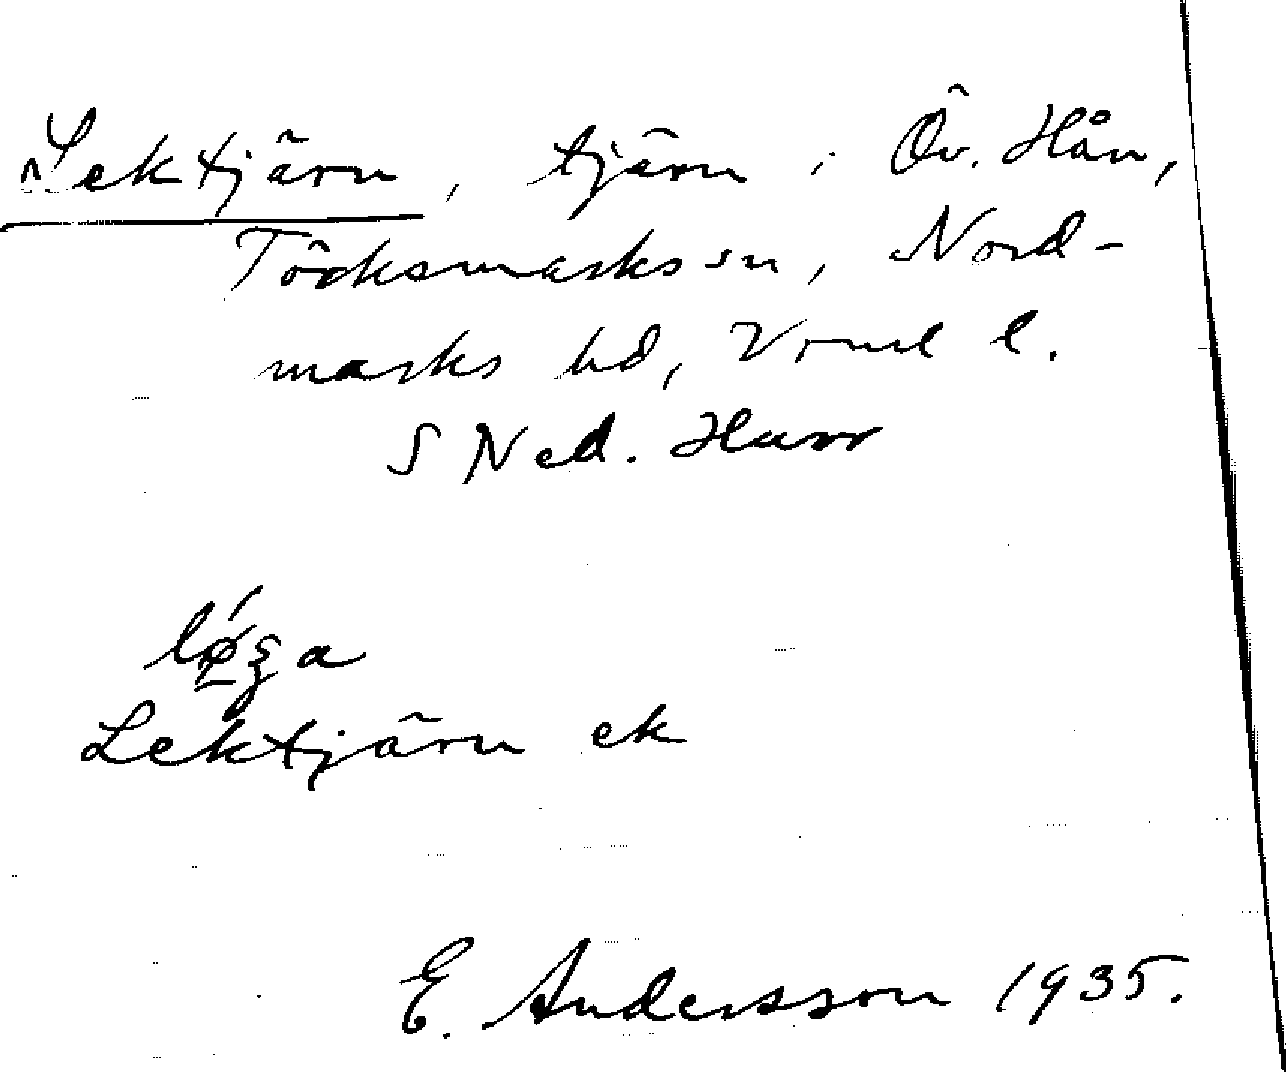 Lektjärn, tjärn i Öv. Hån,
Töcksmarks sn, Nord-
marks hd, Vrml l.
S Ned. Harr
Lektjärn ek
E. Andersson 1935.